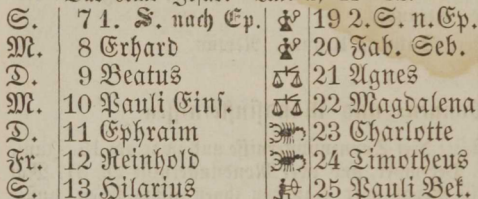 S. 7 1. S. nach Ep. 19 2. S. n. Ep.
M. 8 Erhard 20 Fab. Seb.
D. 9 Beatus 21 Agnes
M. 10 Pauli Eins. 22 Magdalena
D. 11 Ephraim 23 Charlotte
Fr. 12 Reinhold 24 Timotheus
S. 13 Hilarius 25 Pauli Bek.